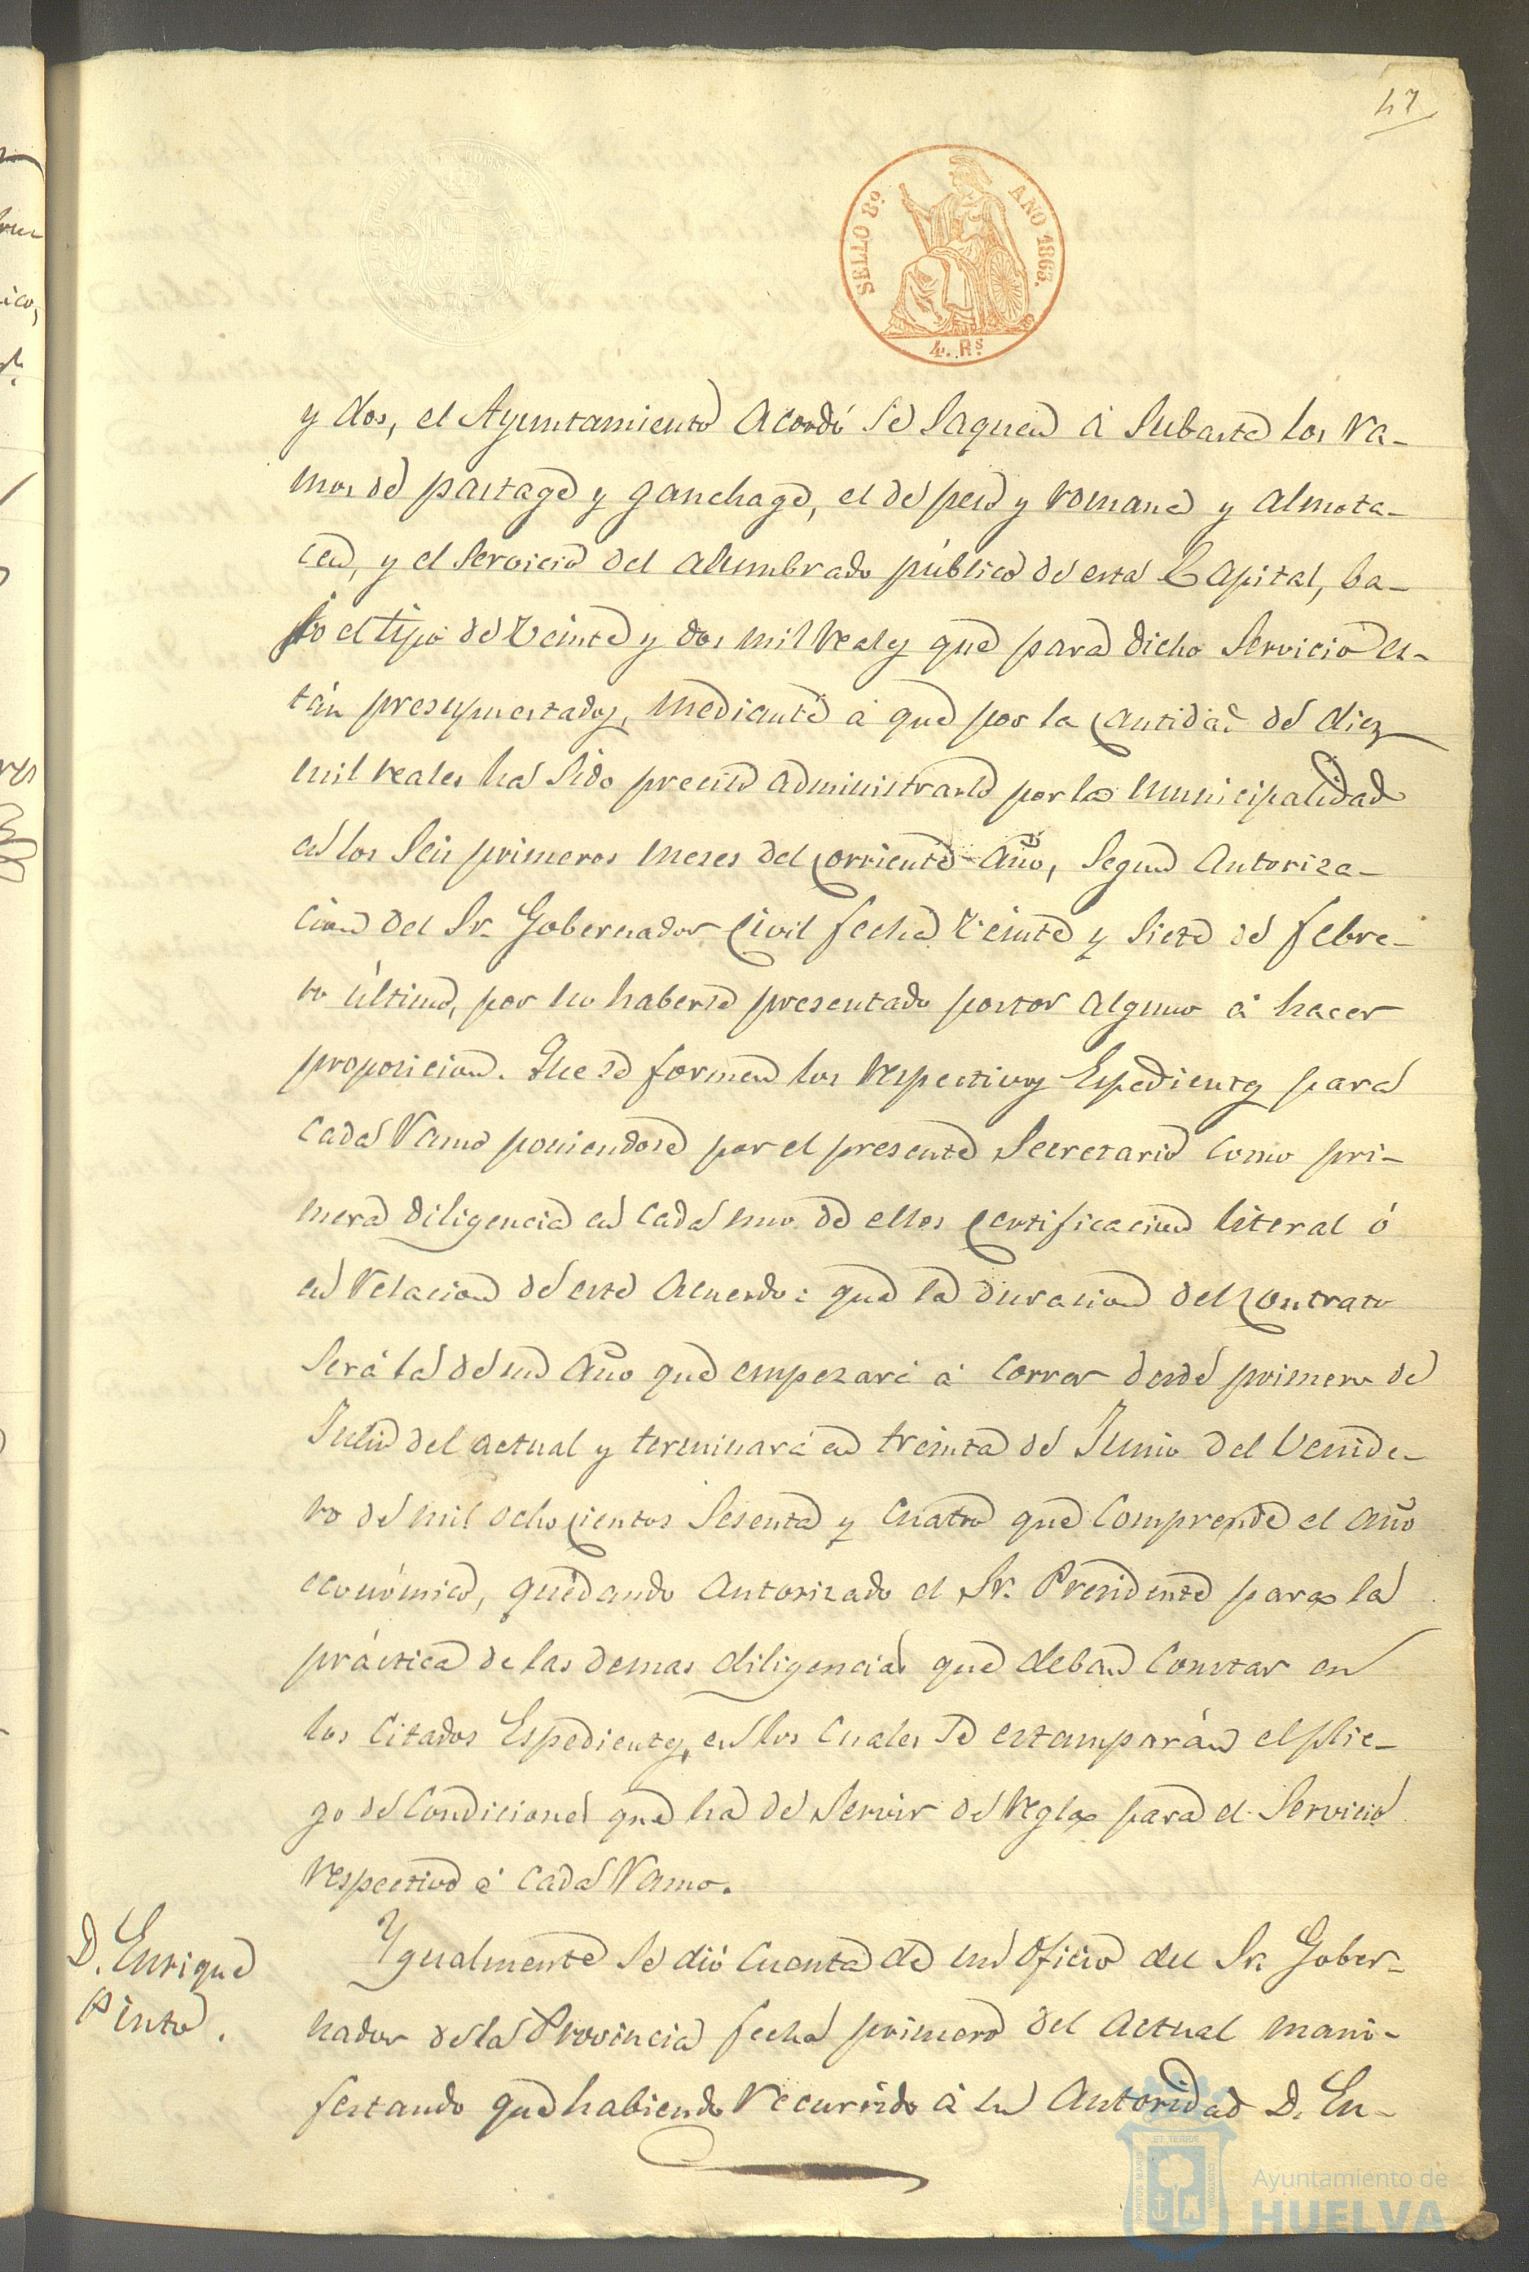 47
SELLO 8º AÑO 1863.
4. Rˢ
y dos, el Ayuntamiento Acordó Se Saquen á Subasta los Ra-
mos de pastage y ganchage, el de peso y romana y almota-
cen, y el Servicio del alumbrado público de esta Capital, ba-
jo el tipo de Veinte y dos mil reales que para dicho Servicio es-
tán presupuestados, mediante á que por la Cantidad de diez
mil reales ha Sido preciso administrarlo por la Municipalidad
en los Seis primeros meses del Corriente año, Segun Autoriza-
cion del Sr. Gobernador Civil fecha Veinte y Siete de febre-
ro último, por no haberse presentado postor alguno á hacer
proposicion. Que se formen los respectivos Espedientes para
Cada Ramo poniendose por el presente Secretario Como pri-
mera diligencia en cada uno de ellos Certificacion literal ó
en relacion de este Acuerdo: que la duracion del Contrato
Será la de un Año que empezará á Correr desde primero de
Julio del actual y terminará en treinta de Junio del Venide-
ro de mil ochocientos Sesenta y Cuatro que Comprende el año
económico, quedando Autorizado el Sr. Presidente para la
práctica de las demas diligencias que deban Constar en
los Citados Espedientes, en los Cuales Se estamparán el plie-
go de Condiciones que ha de Servir de regla para el Servicio
respectivo á Cada Ramo.
D. Enrique
Pinto.
Ygualmente Se dió Cuenta de un Oficio del Sr. Gober-
nador de la Provincia fecha primero del Actual mani-
festando que habiendo recurrido á su Autoridad D. En-
Ayuntamiento de
HUELVA